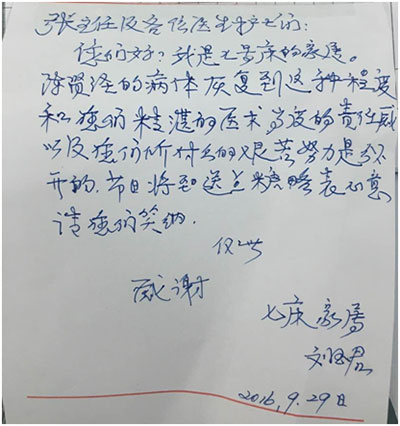 张主任及各位医生护士们:
您们好!我是七号床的家属。
徐贤泽的病体灰复到这种程度
和您们精湛的医术高度的责任感
以及您们所付出的艰苦努力是分不
开的.节日将至送点糖略表心意
请您们笑纳.
仅此
感谢
七床家属
刘君
2016,9.29日